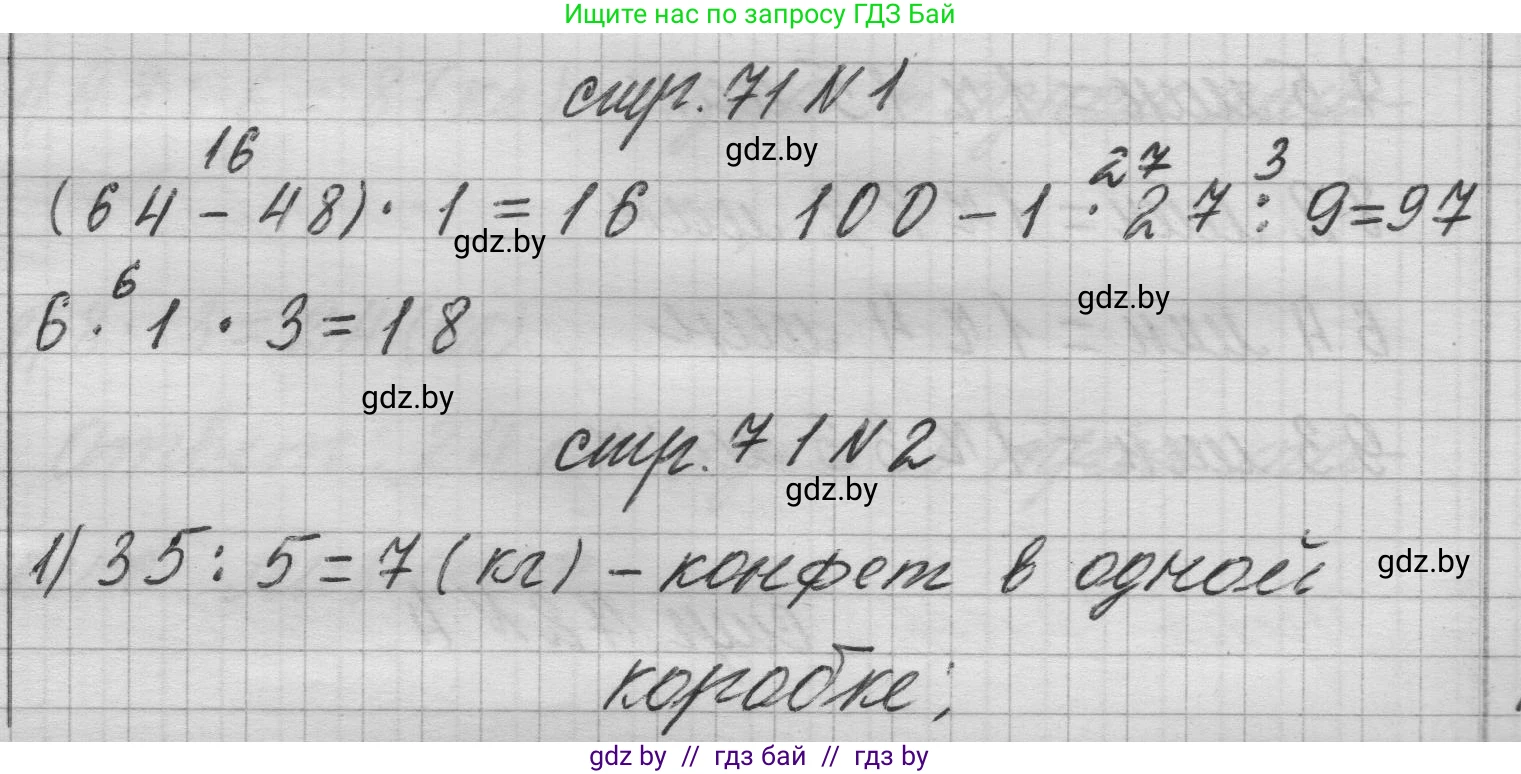 Ищите нас по запросу ГДЗ Бай
стр. 71 N 1
gdz.by
16
27 3
(64 - 48) · 1 = 16 100 - 1 · 27 : 9 = 97
gdz.by
6
gdz.by
6 · 1 · 3 = 18
gdz.by
стр. 71 N 2
gdz.by
1) 35 : 5 = 7 (кг) - конфет в одной
gdz.by
коробке;
gdz by // гдз бай // гдз by